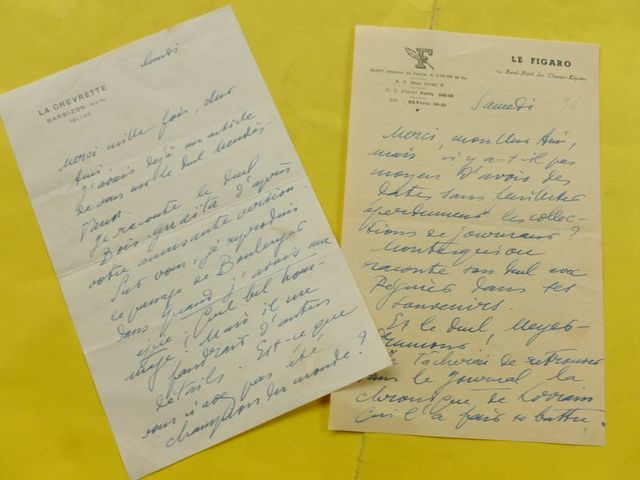 LA CHEVRETTE
BARBIZON (S&M)
lundi
Merci mille fois, cher
Ami.
J'avais déjà un article
de vous sur le duel Mendès
Je raconte le duel
Bois-Guaita d'après
votre amusante version.
Sur vous, je reproduis
le passage de Boulenger
dans quand j'avais une
Quel bel hom-
mage ! Mais il me
faudrait d'autres
détails. Est-ce que
vous n'avez pas été
champion du monde ?
LE FIGARO
14, Rond-Point des Champs-Elysées
Samedi
Merci, mon cher Ami,
mais n'y a-t-il pas
moyen d'avoir des
dates sans feuilleter
éperdument les collec-
tions de journaux ?
Montesquiou
raconte son duel avec
Régnier dans ses
Souvenirs.
Et le duel Meyer-
Drumont ?
Je tâcherai de retrouver
dans le Journal la
chronique de Lorrain
qui l'a fait se battre.